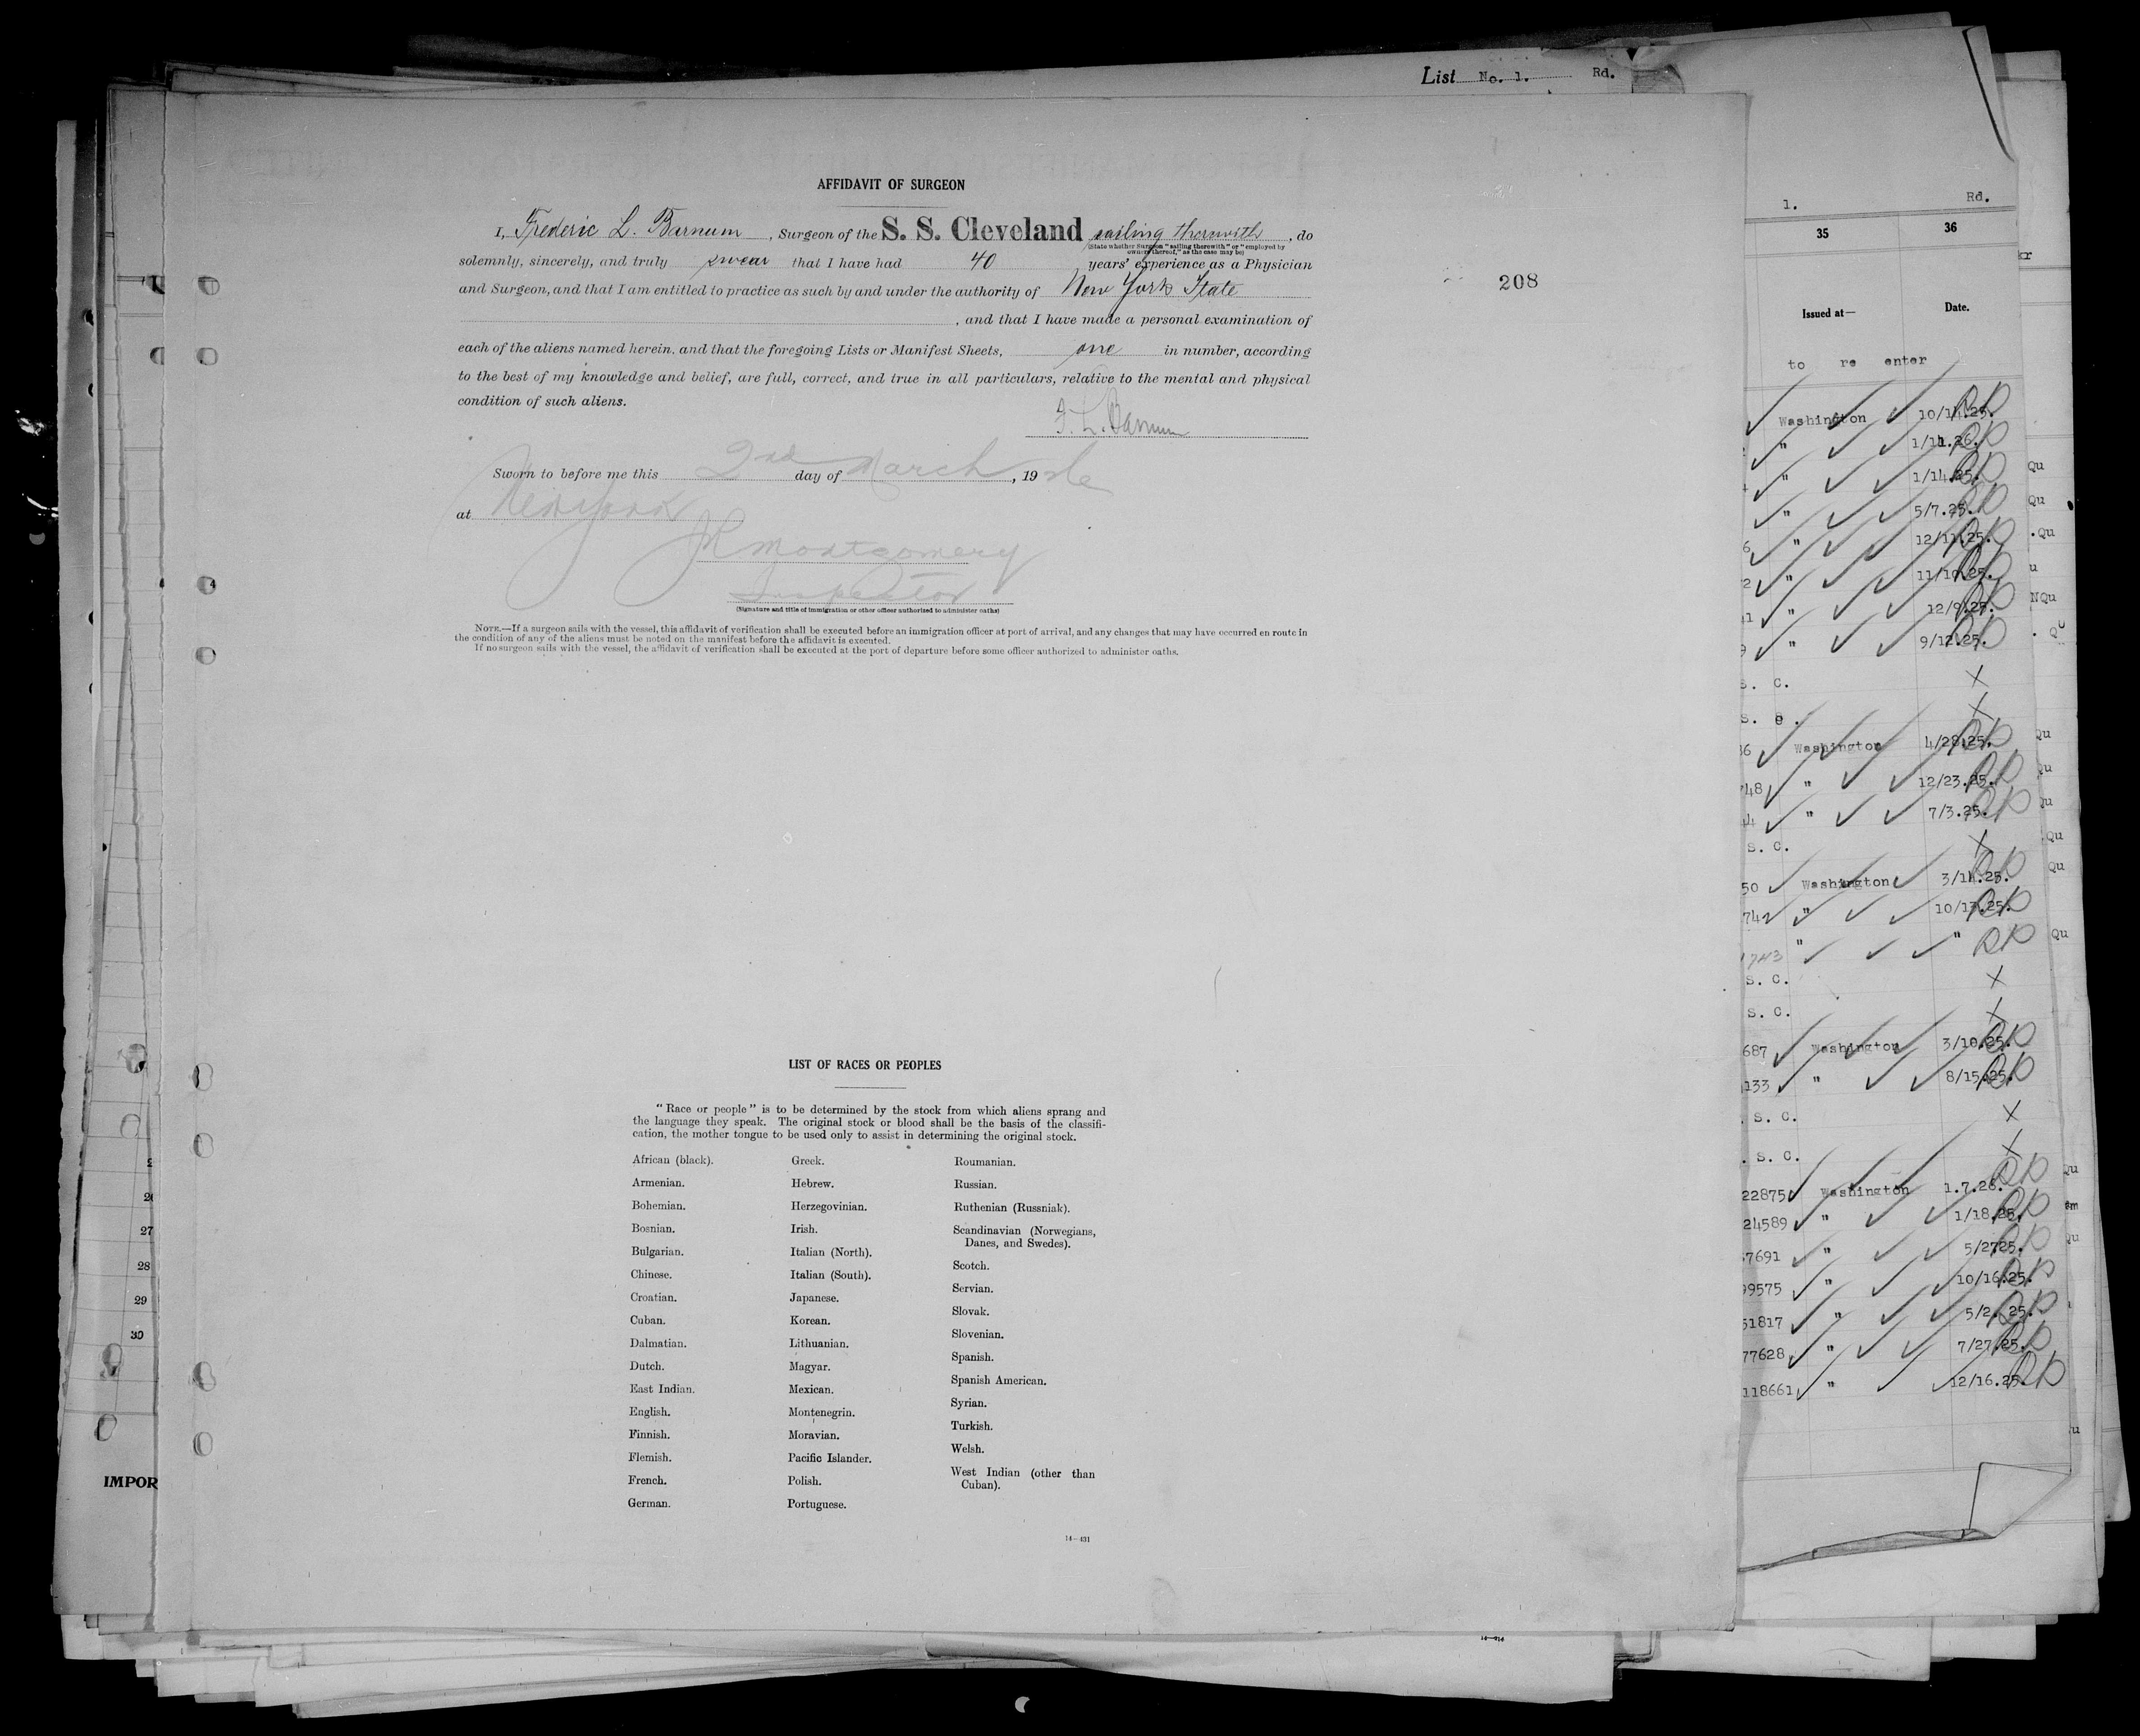 List No. 1. Rd.
AFFIDAVIT OF SURGEON
I, Frederic L. Barnum, Surgeon of the S. S. Cleveland sailing therewith, do
(State whether Surgeon "sailing therewith" or "employed by
owners thereof," as the case may be)
solemnly, sincerely, and truly swear that I have had 40 years' experience as a Physician
and Surgeon, and that I am entitled to practice as such by and under the authority of New York State
, and that I have made a personal examination of
each of the aliens named herein, and that the foregoing Lists or Manifest Sheets, one in number, according
to the best of my knowledge and belief, are full, correct, and true in all particulars, relative to the mental and physical
condition of such aliens.
F. L. Barnum
Sworn to before me this 2nd day of March, 1926
at New York
JR Montgomery
Inspector
(Signature and title of immigration or other officer authorized to administer oaths)
NOTE.—If a surgeon sails with the vessel, this affidavit of verification shall be executed before an immigration officer at port of arrival, and any changes that may have occurred en route in
the condition of any of the aliens must be noted on the manifest before the affidavit is executed.
If no surgeon sails with the vessel, the affidavit of verification shall be executed at the port of departure before some officer authorized to administer oaths.
208
LIST OF RACES OR PEOPLES
"Race or people" is to be determined by the stock from which aliens sprang and
the language they speak. The original stock or blood shall be the basis of the classifi-
cation, the mother tongue to be used only to assist in determining the original stock.
African (black).
Armenian.
Bohemian.
Bosnian.
Bulgarian.
Chinese.
Croatian.
Cuban.
Dalmatian.
Dutch.
East Indian.
English.
Finnish.
Flemish.
French.
German.
Greek.
Hebrew.
Herzegovinian.
Irish.
Italian (North).
Italian (South).
Japanese.
Korean.
Lithuanian.
Magyar.
Mexican.
Montenegrin.
Moravian.
Pacific Islander.
Polish.
Portuguese.
Roumanian.
Russian.
Ruthenian (Russniak).
Scandinavian (Norwegians,
Danes, and Swedes).
Scotch.
Servian.
Slovak.
Slovenian.
Spanish.
Spanish American.
Syrian.
Turkish.
Welsh.
West Indian (other than
Cuban).
14—431
27
28
29
30
IMPOR
1. Rd.
35 36
Issued at— Date.
to re enter
Washington 10/14.25.
" 1/11.26.
" 1/14.25.
" 5/7.25.
" 12/11.25.
" 11/10.25.
" 12/9.25.
" 9/12.25.
S. C. X
S. C. X
36 Washington 4/28.25.
748 " 12/23.25.
44 " 7/3.25.
S. C. X
50 Washington 3/14.25.
742 " 10/13.25.
743 " "
S. C. X
S. C. X
687 Washington 3/10.25.
133 " 8/15.25.
S. C. X
S. C. X
22875 Washington 1.7.26.
24589 " 1/18.25.
7691 " 5/27.25.
99575 " 10/16.25.
51817 " 5/2.25.
77628 " 7/27.25.
118661 " 12/16.25.